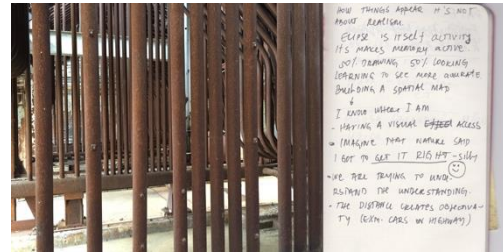 HOW THINGS APPEAR IT'S NOT
ABOUT REALISM.
ERASE IS ITSELF ACTIVITY
IT'S MAKES MEMORY ACTIVE
50% DRAWING, 50% LOOKING
LEARNING TO SEE MORE
BUILDING A SPATIAL MAP
I KNOW WHERE I AM
- HAVING A VISUAL ACCESS
IMAGINE THAT NATURE SAID
I GOT TO GET IT RIGHT - SILLY
- WE ARE TRYING TO UNDE-
RSTAND THE UNDERSTANDING.
- THE DISTANCE CREATES OBJECTIVI-
TY (EXM. CARS ON HIGHWAY)